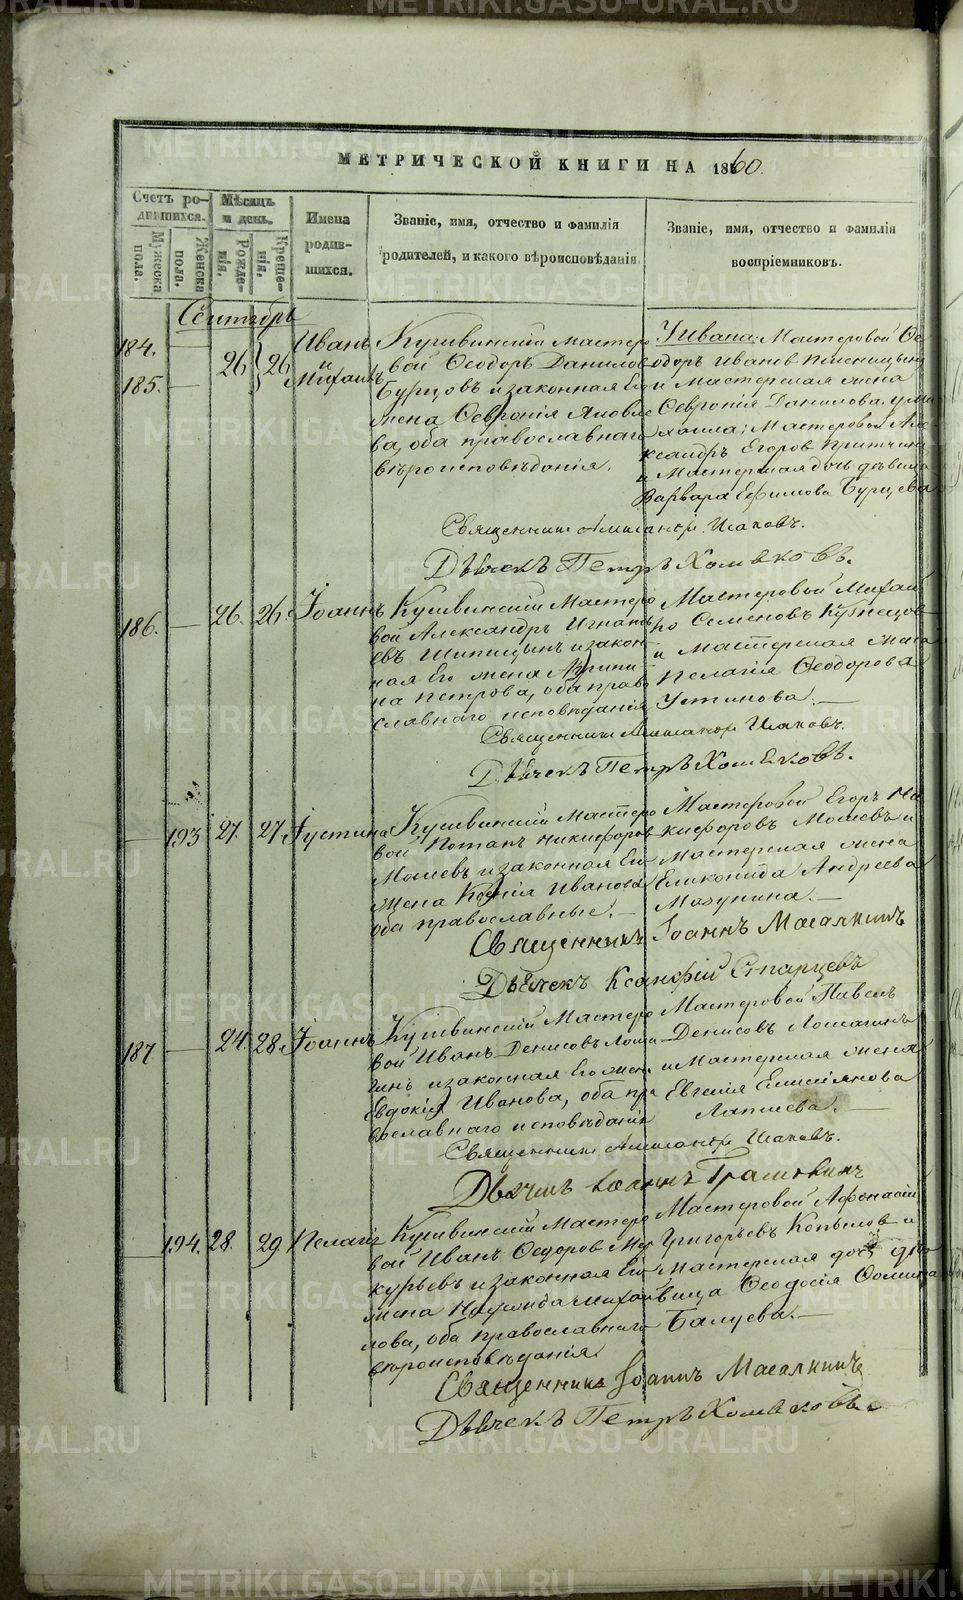 МЕТРИЧЕСКОЙ КНИГИ НА 1860.
Счетъ ро-
дившихся.
Мужеска
пола.
Женска
пола.
Мѣсяцъ
и день.
Рожде-
нія.
Креще-
нія.
Имена
родив-
шихся.
Званіе, имя, отчество и фамилія
родителей, и какого вѣроисповѣданія.
Званіе, имя, отчество и фамилія
воспріемниковъ.
Сентябрь
184.
185.
26
26
Иванъ
и
Михаилъ
Кушвинскій Мастеро
вой Ѳеодоръ Данилов
Бурцовъ и законная его
жена Ѳевронія Яковле
ва, оба православнаго
вѣроисповѣданія.
У Ивана, Мастеровой Ѳе
одоръ Иванов
и Мастерская жена
Ѳевронія Данилова. у Ми
хаила; Мастеровой Але
ксандръ Егоров
и Мастерская дочь дѣвица
Варвара Ефимова Бурцева
Священникъ Александръ Исаковъ.
Дьячекъ Петръ Хомяковъ.
186.
26.
26.
Іоаннъ
Кушвинскій Мастеро
вой Александръ Игнать
евъ Шипицынъ и закон
ная Его жена Ирини
на Петрова, оба право
славнаго исповѣданія
Мастеровый Михай
ло Семеновъ Кузнецов
и Мастерская жена
Пелагія Ѳеодорова
Устинова.
Священникъ Александръ Исаковъ.
Дьячекъ Петръ Хомяковъ.
193
27.
27
Іустина
Кушвинскій Мастеро
вой Потапъ Никифоров
Мошевъ и законная Его
жена Ксенія Иванова
оба православные.
Мастеровой Егоръ Ни
кифоровъ Мошевъ и
Мастерская жена
Еликонида Андреева
Мазунина.
Священникъ Іоаннъ Масалкинъ
Дьячекъ Ксанѳій Старцевъ
187
24.
28.
Іоаннъ
Кушвинскій Мастеро
вой Иванъ Денисовъ Лома
гинъ и законная Его жена
Евдокія Иванова, оба пра
вославнаго исповѣданія
Мастеровой Павелъ
Денисовъ Ломагинъ
и Мастерская жена
Евгенія
Лаптева.
Священникъ Александръ Исаковъ.
Дьячекъ Іоаннъ
194.
28.
29
Пелагія
Кушвинскій Мастеро
вой Иванъ Ѳедоров Мер
курьевъ и законная Его
жена Михай
лова, оба православнаго
вѣроисповѣданія.
Мастеровой Афонасій
Григорьевъ Копылов и
Мастерская дочь дѣ
вица Ѳеодосія Ѳомина
Балуева.
Священникъ Іоаннъ Масалкинъ
Дьячекъ Петръ Хомяковъ.
METRIKI.GASO-URAL.RU